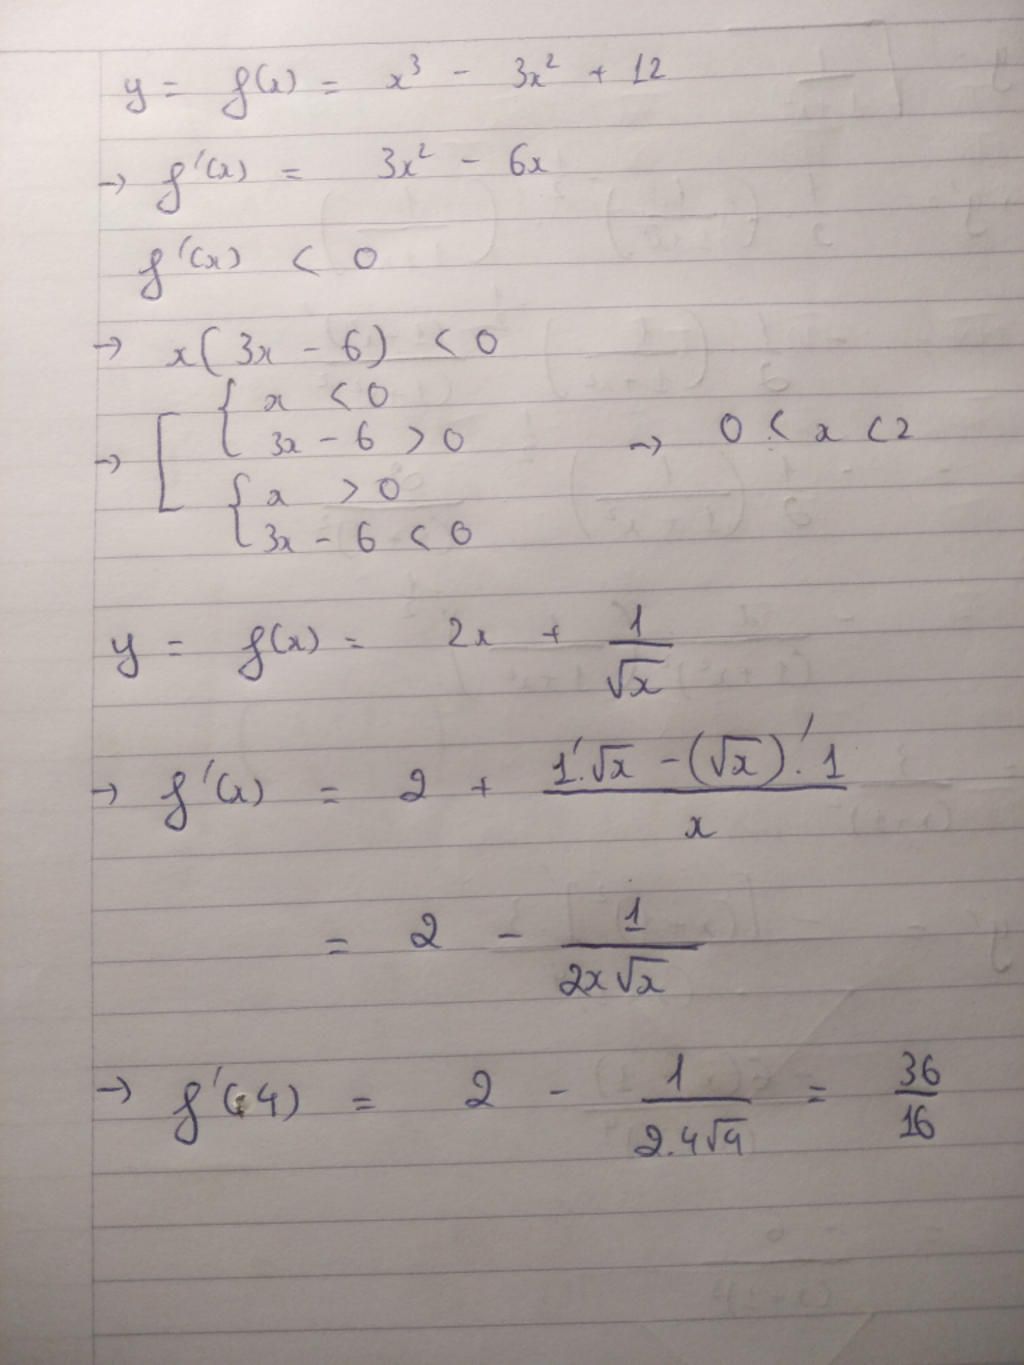 y = f(x) = x³ - 3x² + 12
→ f'(x) = 3x² - 6x
f'(x) < 0
→ x(3x - 6) < 0
→ [ { x < 0
3x - 6 > 0 → 0 < x < 2
{ x > 0
3x - 6 < 0
y = f(x) = 2x + 1/√x
→ f'(x) = 2 + (1'.√x - (√x)'.1)/x
= 2 - 1/(2x√x)
→ f'(4) = 2 - 1/(2.4√4) = 36/16